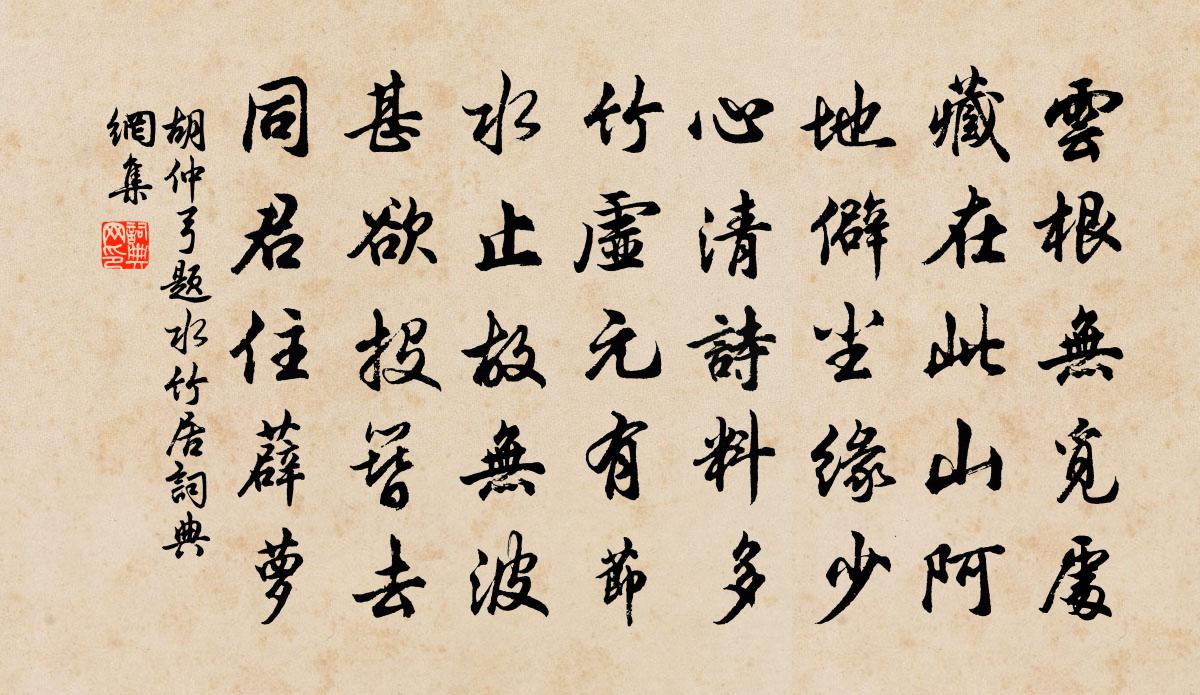 雲根無覓處
藏在此山阿
地僻尘緣少
心清詩料多
竹虛元有節
水止故無波
甚欲投簪去
同君住薜萝
胡仲弓題水竹居詞典
網集
詞典
网印